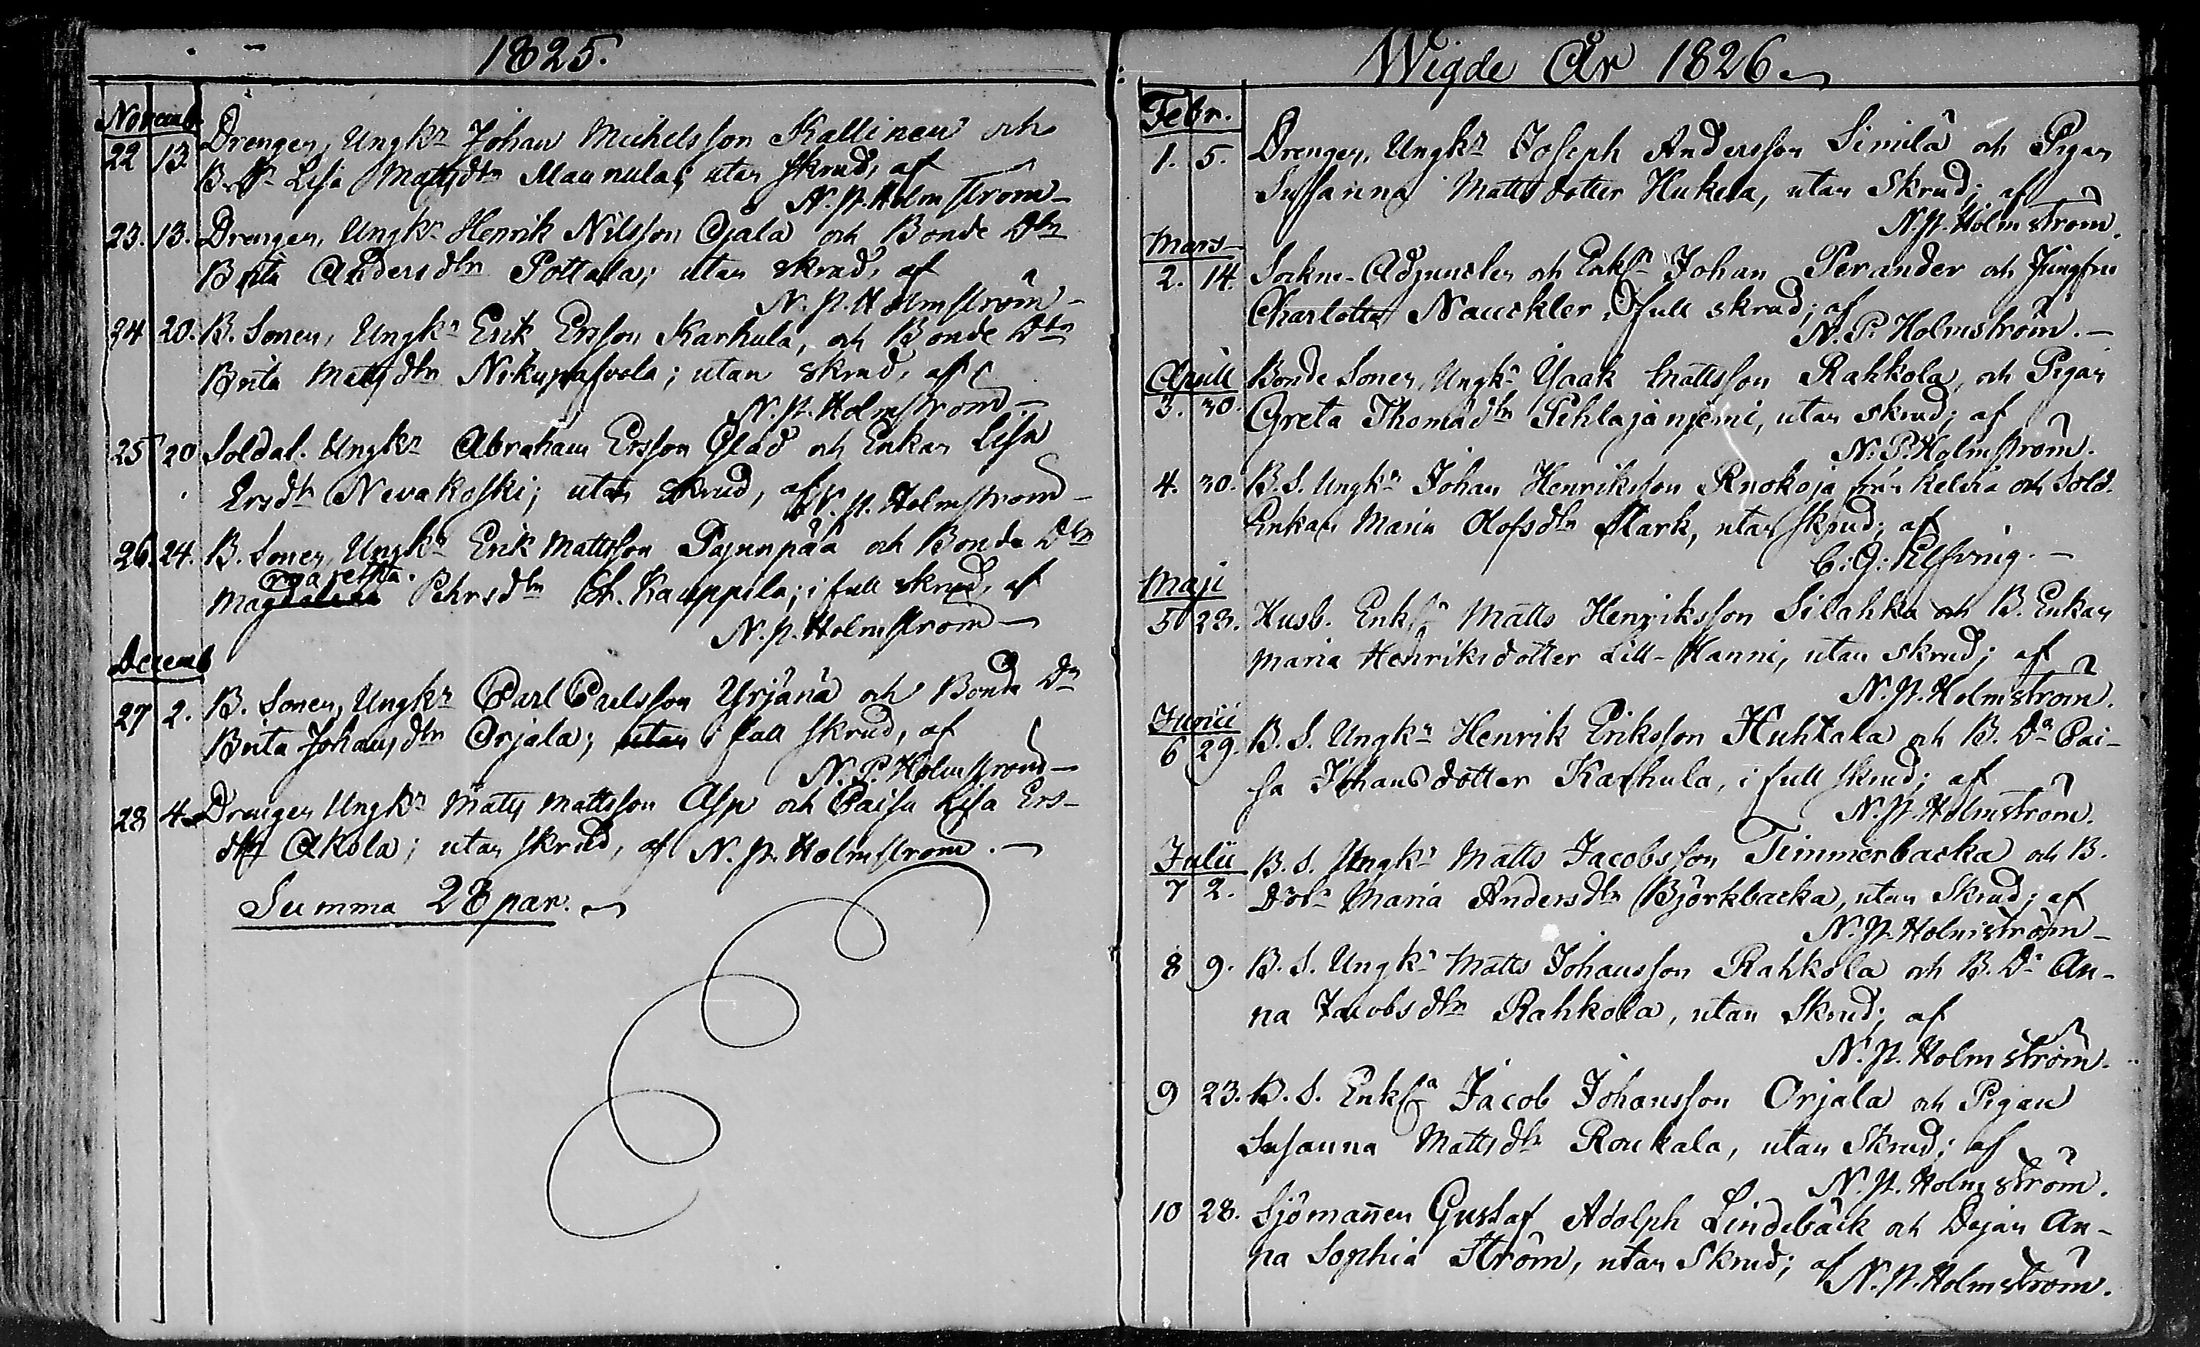 1825.
Novemb.
22 13. Drengen, Ungk:n Johan Michelsson Kallinen och
B. D:r Lisa Mattsdtr Maunula; utan skrud, af
N. P. Holmström
23. 13. Drengen, Ungk:n Henrik Nilsson Ojala och Bonde Dtn
Brita Andersdtr Pottala; utan skrud, af
N. P. Holmström
24 20. B. Sonen, Ungk:n Erik Ersson Karhula, och Bonde Dtn
Brita Mattsdtr; utan skrud, af
N. P. Holmström
25 20 Soldat. Ungk:n Abraham Ersson Glad och Enkan Lisa
Ersdtr Nevakoski; utan skrud, af N. P. Holmström
26. 24. B. Sonen, Ungk:n Erik Mattsson Pajunpää och Bonde Dtn
Margaretha Pehrsdtr Kauppila; i full skrud, af
N. P. Holmström
Decemb
27 2. B. Sonen, Ungk:n Carl Carlsson Yrjänä och Bonde Dn
Brita Johansdtr Orjala; utan i full skrud, af
N. P. Holmström
28 4 Drengen Ungk:n Matts Mattsson Asp och Caisa Lisa Ers-
dtr Akola; utan skrud, af N. P. Holmström.
Summa 28 par.
Wigde År 1826
Febr.
1. 5. Drengen, Ungk:n Joseph Andersson Similä och Pigan
Susanna Mattsdotter Hukela, utan Skrud; af
N. P. Holmström.
Mars
2. 14. Sockne-Adjuncten och Enkl:n Johan Perander och Jungfru
Charlotta Nauckler, i full skrud; af
N. P. Holmström.
Aprill
3. 30. Bonde Sonen, Ungk:n Isaak Mattsson Rahkola, och Pigan
Greta Thomadtr Pehlajaniemi, utan skrud; af
N. P. Holmström.
4. 30. B. S. Ungk:n Johan Henriksson från Kelviå och Sold.
Enkan Maria Olofsdtr Stark, utan skrud; af
C. G.
Maji
5 23. Husb. Enkl:n Matts Henriksson Silahka och B. Enkan
Maria Henriksdotter Lill-Hanni, utan skrud; af
N. P. Holmström.
Junii
6 29. B. S. Ungk:n Henrik Eriksson Huhtala och B. Dn Cai-
sa Johansdotter Karhula, i full skrud; af
N. P. Holmström.
Julii
7 2. B. S. Ungk:n Matts Jacobsson Timmerbacka och B.
Dotn Maria Andersdtr Björkbacka, utan Skrud; af
N. P. Holmström
8 9. B. S. Ungk:n Matts Johansson Rahkola och B. Dn An-
na Jacobsdtr Rahkola, utan Skrud; af
N. P. Holmström.
9 23. B. S. Enkl:n Jacob Johansson Orjala och Pigan
Susanna Mattsdtr Roukala, utan Skrud; af
N. P. Holmström.
10 28. Sjömannen Gustaf Adolph Lindebäck och Dejan An-
na Sophia Ström, utan Skrud; af N. P. Holmström.